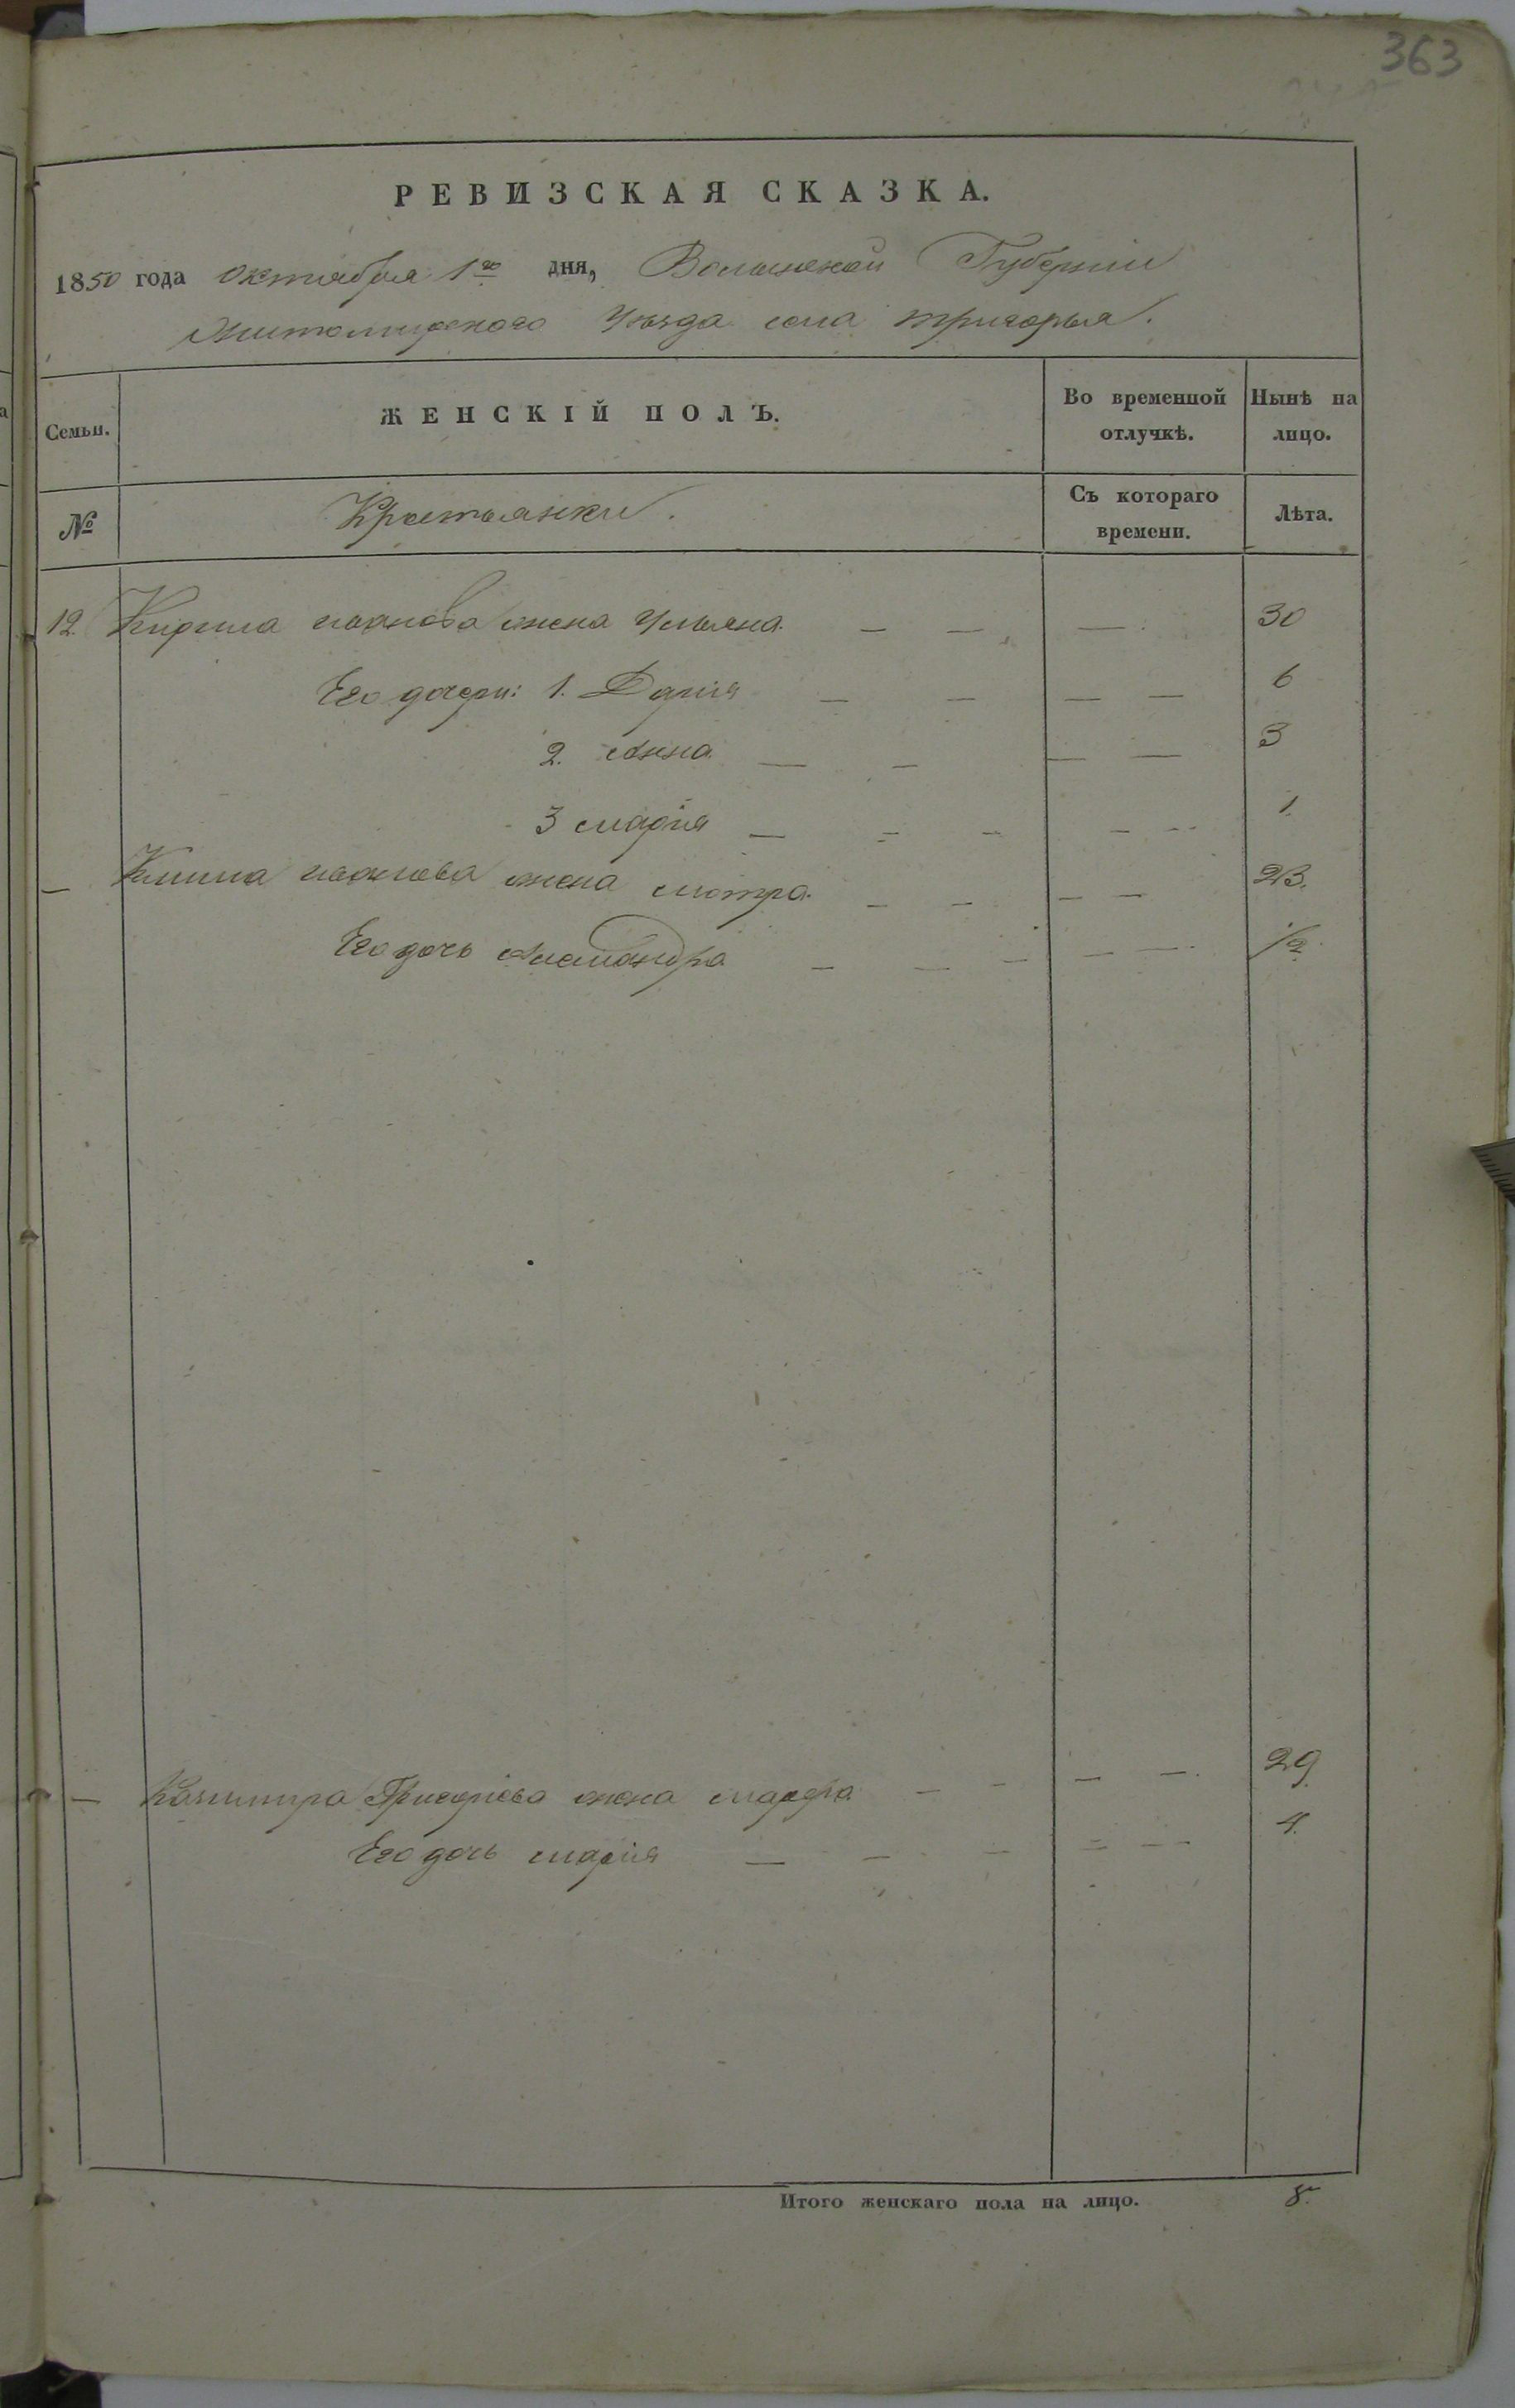 363
РЕВИЗСКАЯ СКАЗКА.
1850 года Октября 1го дня, Волынской Губернии
Житомирского Уезда села Тригорья.
Семьи. ЖЕНСКІЙ ПОЛЪ. Во временной отлучкѣ. Нынѣ на лицо.
№ Крестьянки. Съ котораго времени. Лѣта.
12. Кирила иванова жена Ульяна — — — 30
Его дочери: 1. Дарія — — — — 6
2. Анна — — — — 3
3 Марія — — — — — 1.
— Клима иванова жена Мотра — — — — 23.
Его дочь Александра — — — — — 1/2.
— Казимира Григоріева жена — — — — 29.
Его дочь Марія — — — — — 4.
Итого женскаго пола на лицо. 8.